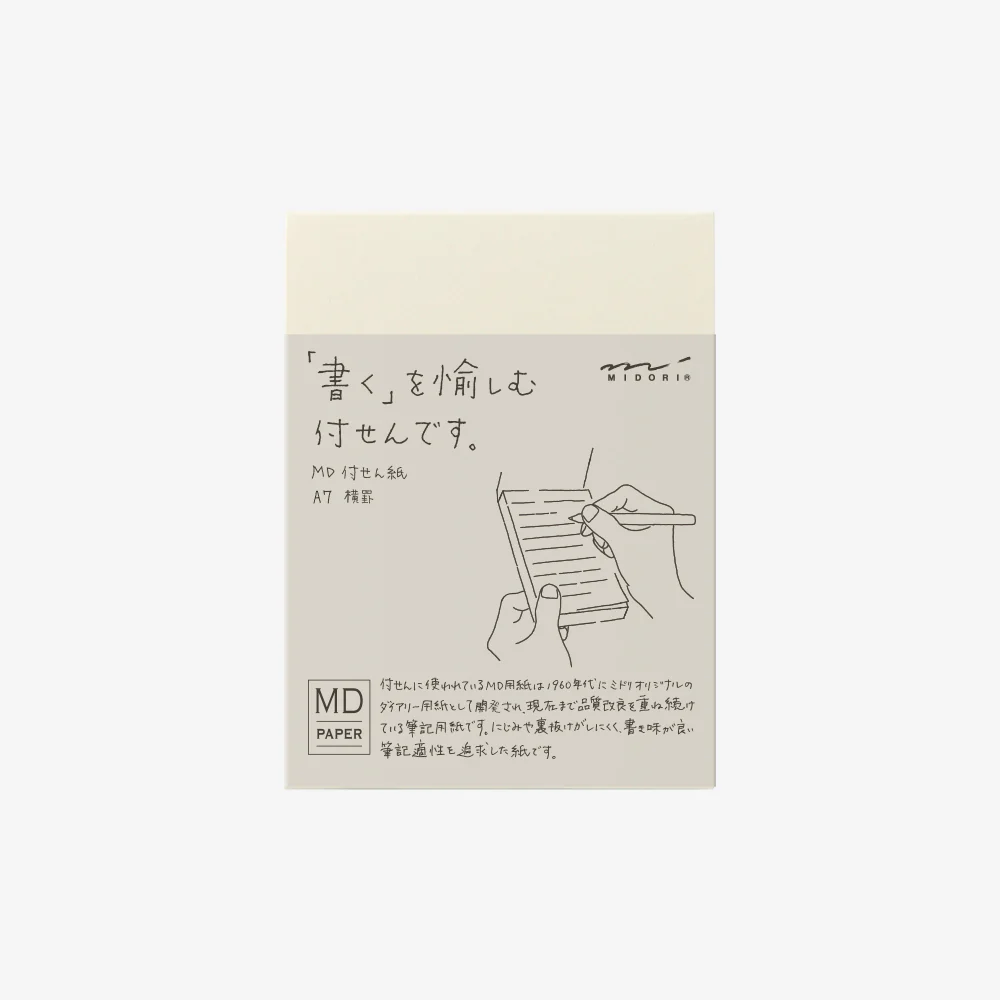 「書く」を愉しむ
付せんです。
MIDORI®
MD 付せん紙
A7 横罫
MD
PAPER
付せんに使われているMD用紙は1960年代にミドリオリジナルの
ダイアリー用紙として開発され、現在まで品質改良を重ね続け
ている筆記用紙です。にじみや裏抜けがしにくく、書き味が良い
筆記適性を追求した紙です。